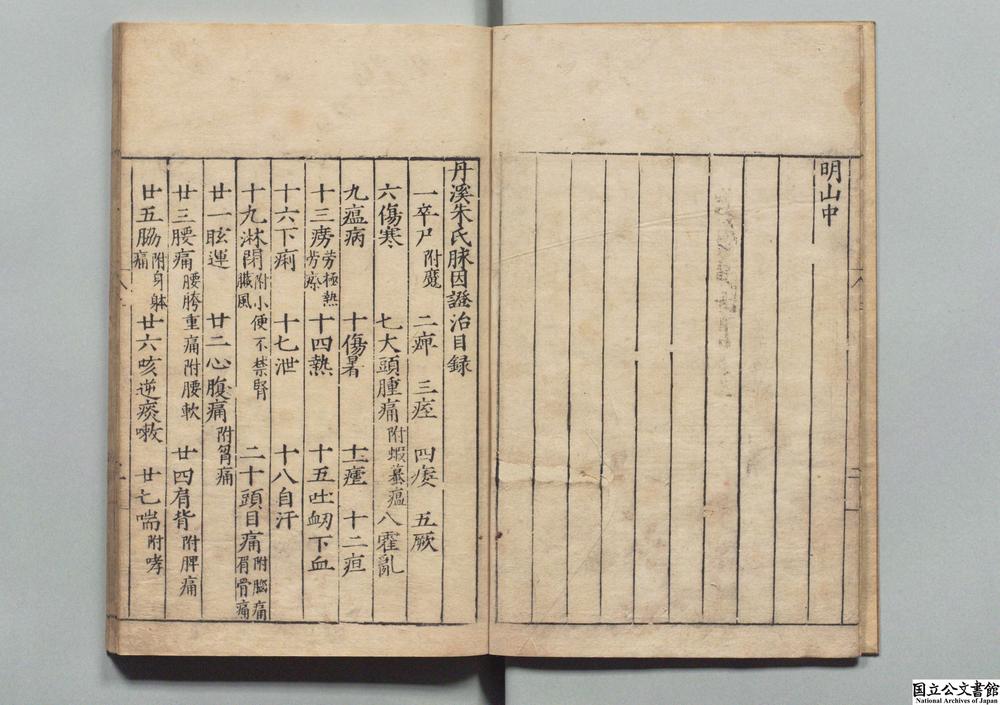 明山中
丹溪朱氏脉因證治目録
一卒尸附魘 二痹 三痓 四痿 五厥
六傷寒 七大頭腫痛附蝦蟇瘟 八霍亂
九瘟病 十傷暑 十一瘧 十二疸
十三癆勞極熱勞瘵 十四熱 十五吐衂下血
十六下痢 十七泄 十八自汗
十九淋閉附小便不禁腎臟風 二十頭目痛附腦痛眉骨痛
廿一眩運 廿二心腹痛附胷痛
廿三腰痛腰胯重痛附腰軟 廿四肩背附脾痛
廿五脇痛附身躰 廿六咳逆痰嗽 廿七喘附哮
国立公文書館
National Archives of Japan